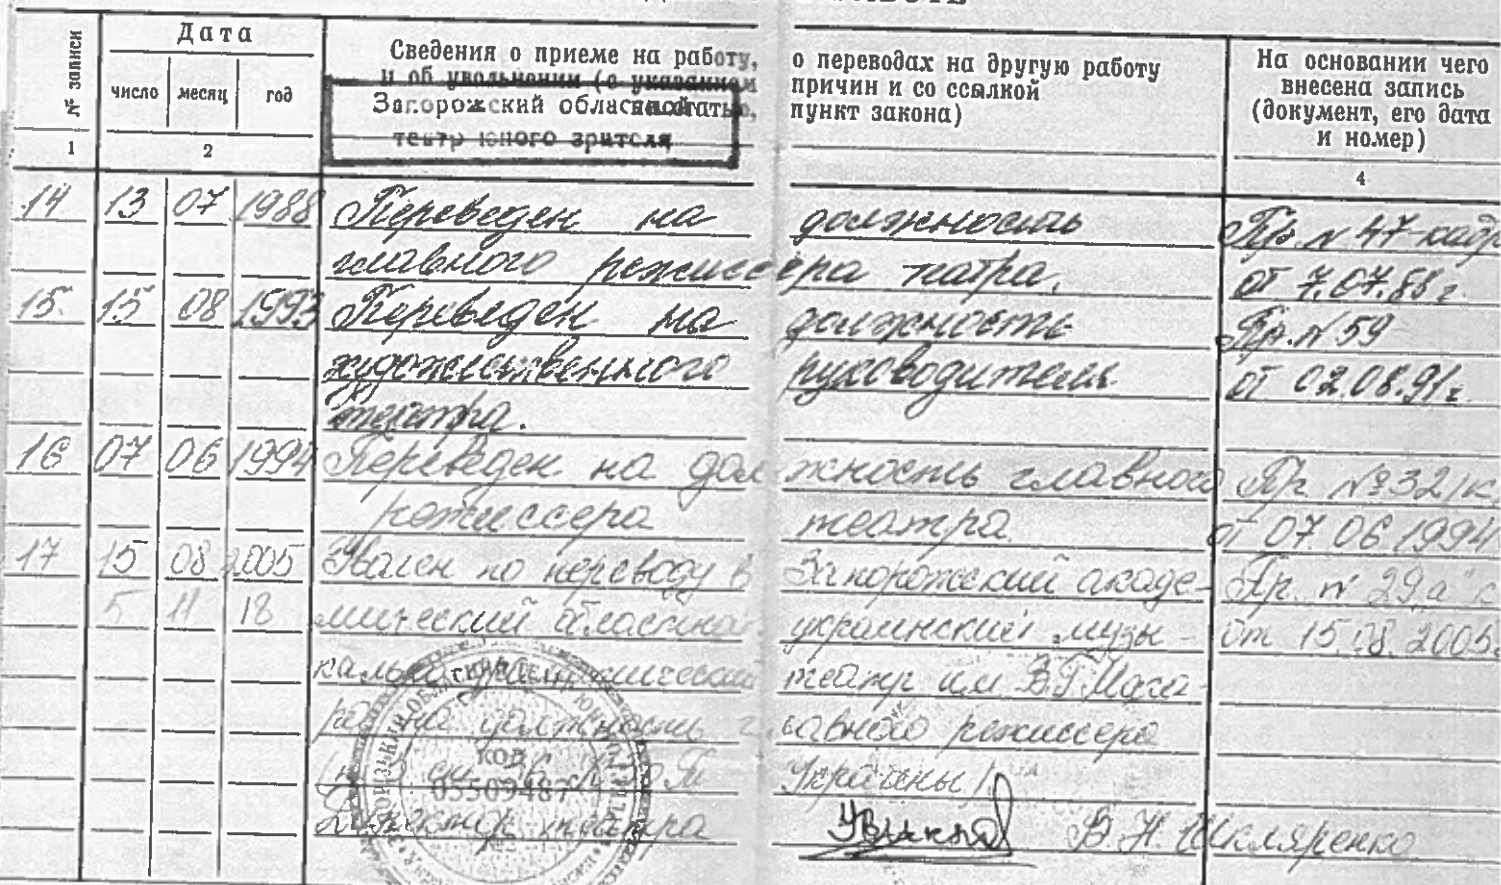 № записи
Дата
число месяц год
Сведения о приеме на работу, о переводах на другую работу
и об увольнении (с указанием причин и со ссылкой
на статью, пункт закона)
На основании чего
внесена запись
(документ, его дата
и номер)
1 2 4
Запорожский областной
театр юного зрителя
14 13 07 1988 Переведен на должность Пр. № 47-кадр
главного режиссера театра. от 7.07.88 г.
15. 15 08 1993 Переведен на должность Пр. № 59
художественного руководителя от 02.08.91 г.
театра.
16 07 06 1994 Переведен на должность главного Пр. № 32/к
режиссера театра от 07.06.1994
17 15 08 2005 Уволен по переводу в Запорожский акаде- Пр. № 29а к
5 11 18 мический областной украинский музы от 15.08.2005
театр им В.Г. Мага-
должность главного режиссера
Украины
Директор театра В.Н. Шкляренко
КОД
05509487